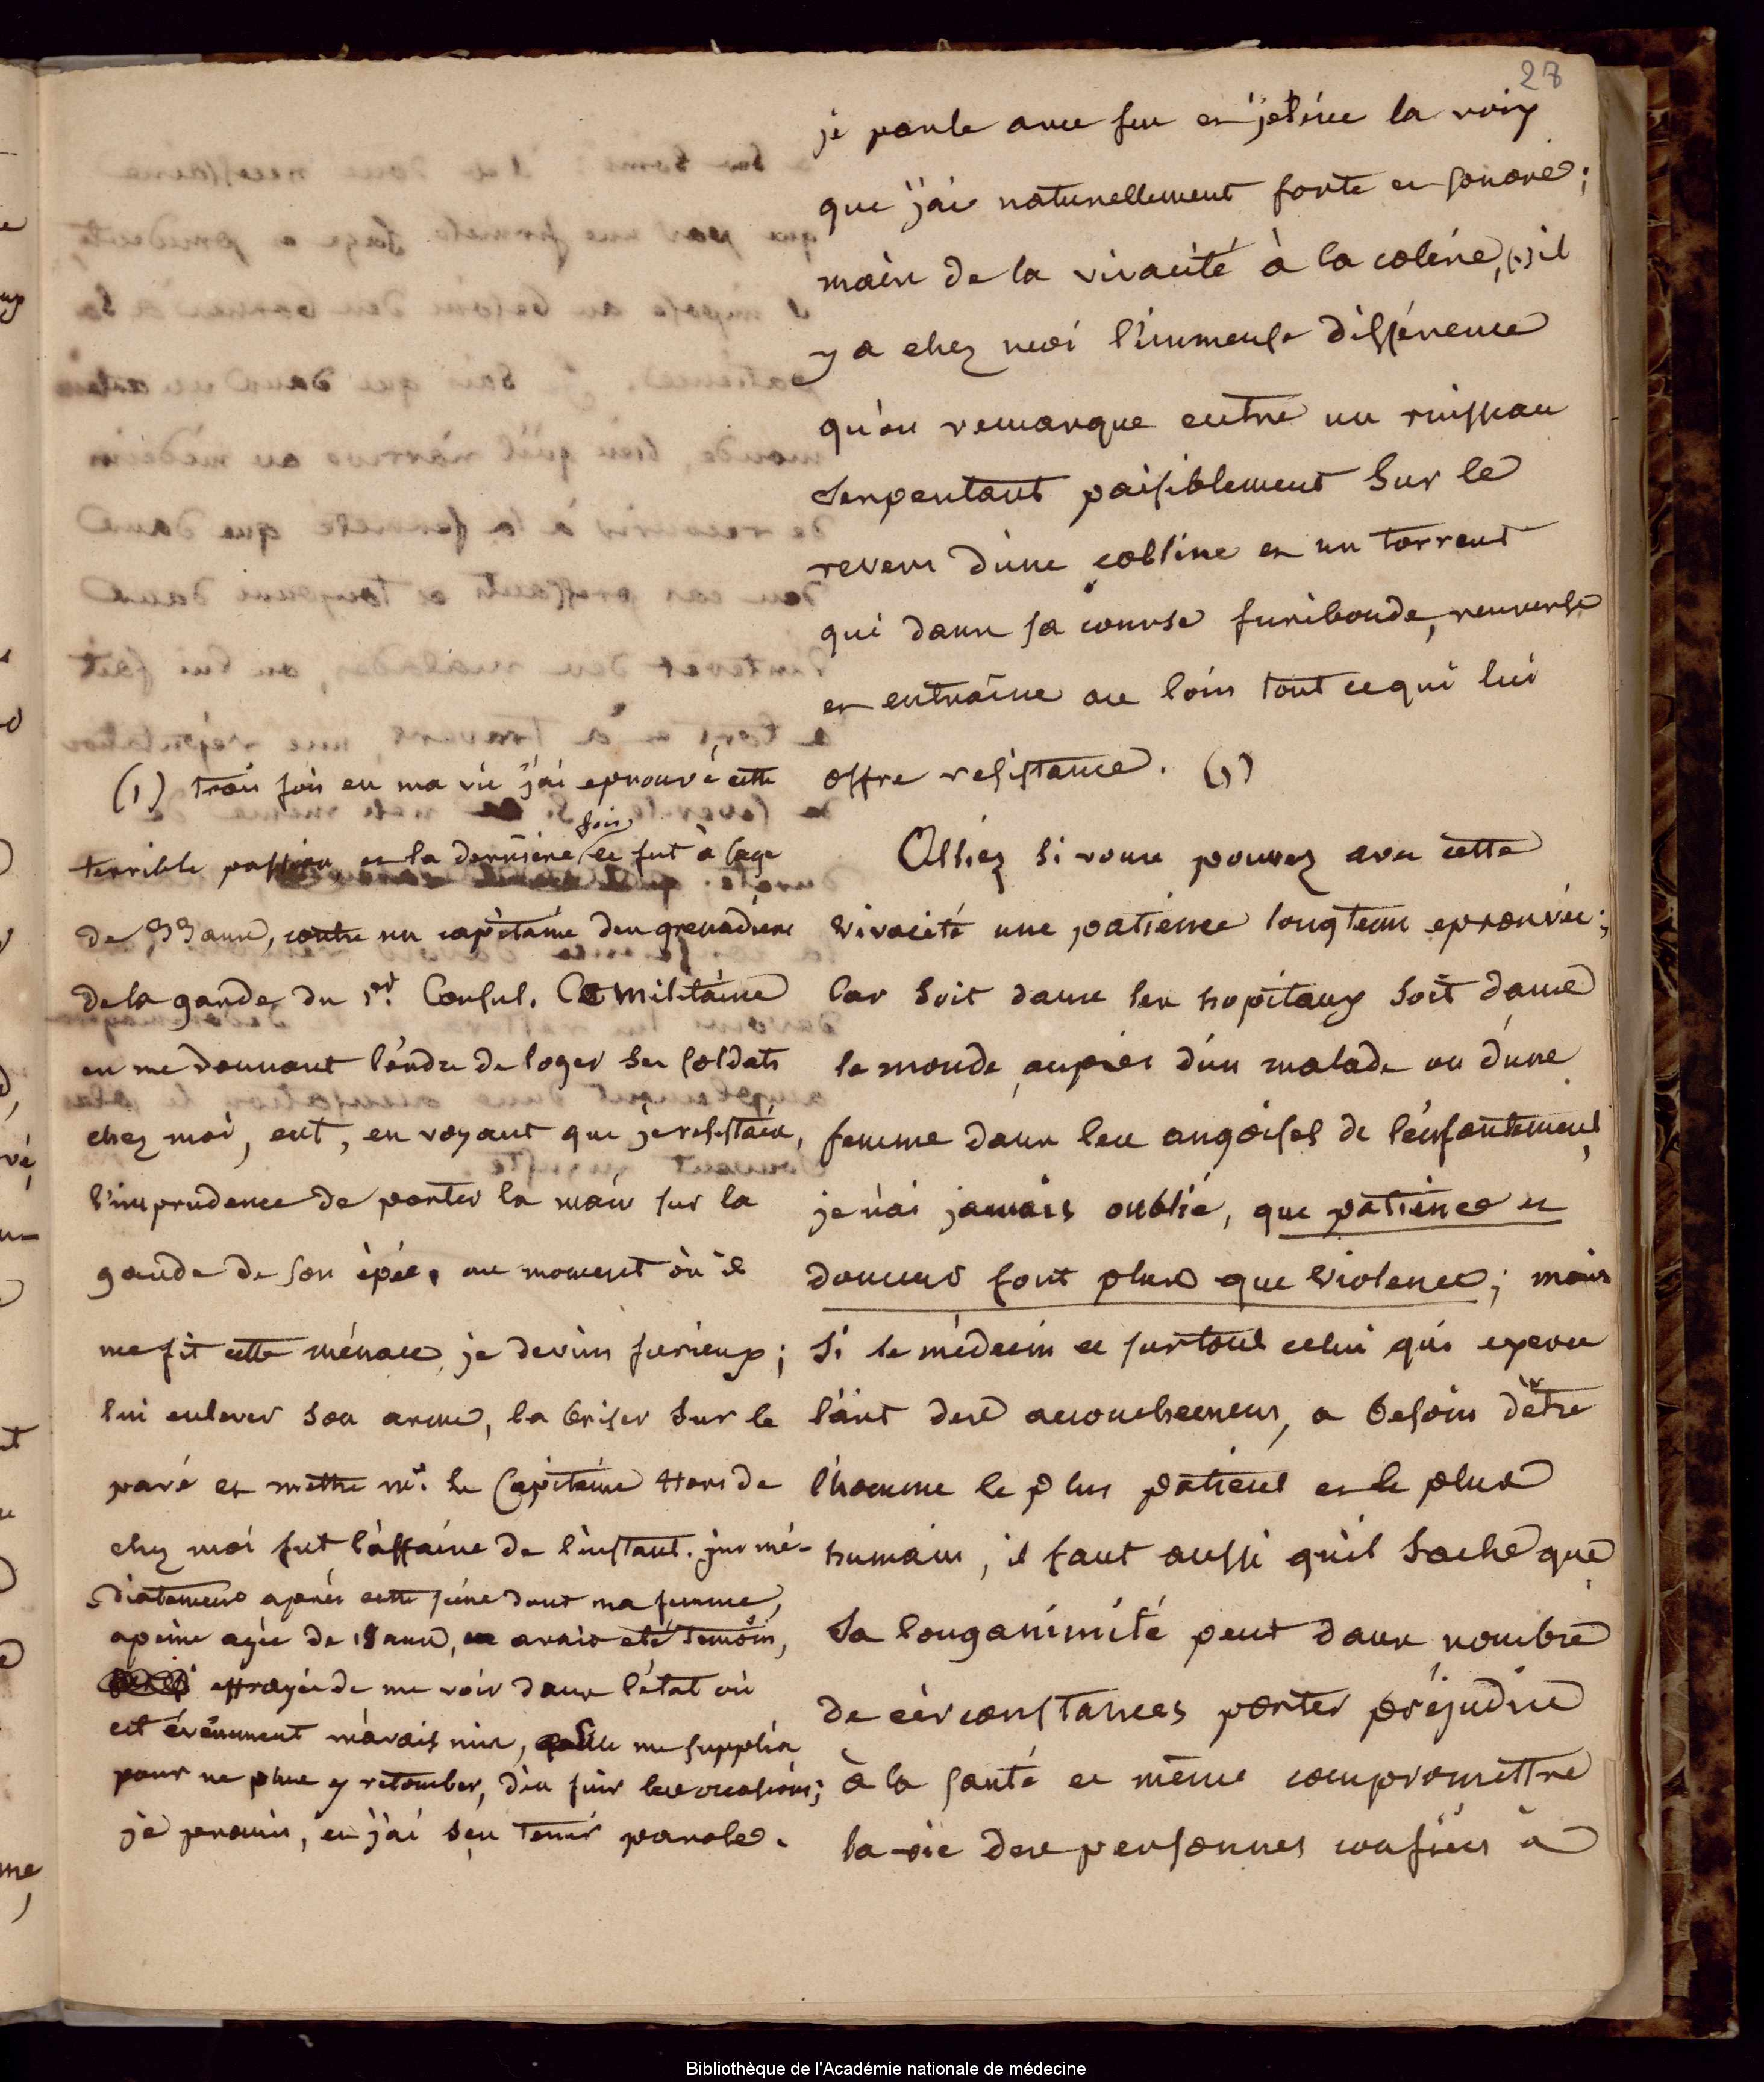 27
je parle avec feu et j'elève la voix
que j'ai naturellement forte et sonore;
mais de la vivacité à la colère, (1) il
y a chez moi l'immense différence
qu'on remarque entre un ruisseau
serpentant paisiblement sur le
revers d'une colline et un torrent
qui dans sa course furibonde, renverse
et entraîne au loin tout ce qui lui
offre resistance. (1)
Alliez si vous pouvez avec cette
vivacité une patience longtems eprouvée;
Car soit dans les hopitaux soit dans
le monde, auprès d'un malade ou d'une
femme dans les angoises de l'enfantement,
je n'ai jamais oublié, que patience et
douceur font plus que violence; mais
si le médecin et surtout celui qui exerce
l'art des accouchemens, a besoin d'être
l'homme le plus patient et le plus
humain, il faut aussi qu'il sache que
sa longanimité peut dans nombre
de circonstances porter préjudice
à la santé et même compromettre
la vie des personnes confiées à
(1) trois fois en ma vie j'ai eprouvé cette
terrible passion, et la dernière fois ce fut à l'age
de 33 ans, contre un capitaine des grenadiers
de la garde du 1er. Consul. Ce militaire
en me donnant l'ordre de loger ses soldats
chez moi, eut, en voyant que je resistais,
l'imprudence de porter la main sur la
garde de son épée. au moment où il
me fit cette ménace je devins furieux;
lui enlever son arme, la briser sur le
pavé et mettre mr. le Capitaine hors de
chez moi fut l'affaire de l'instant. immé-
diatement après cette scène dont ma femme,
apeine agée de 18 ans, avait eté temoin,
effrayée de me voir dans l'état où
cet évènement m'avait mis, elle me supplia
pour ne plus y retomber, d'en fuir les occasions;
je promis, et j'ai sçu tenir parole.
Bibliothèque de l'Académie nationale de médecine